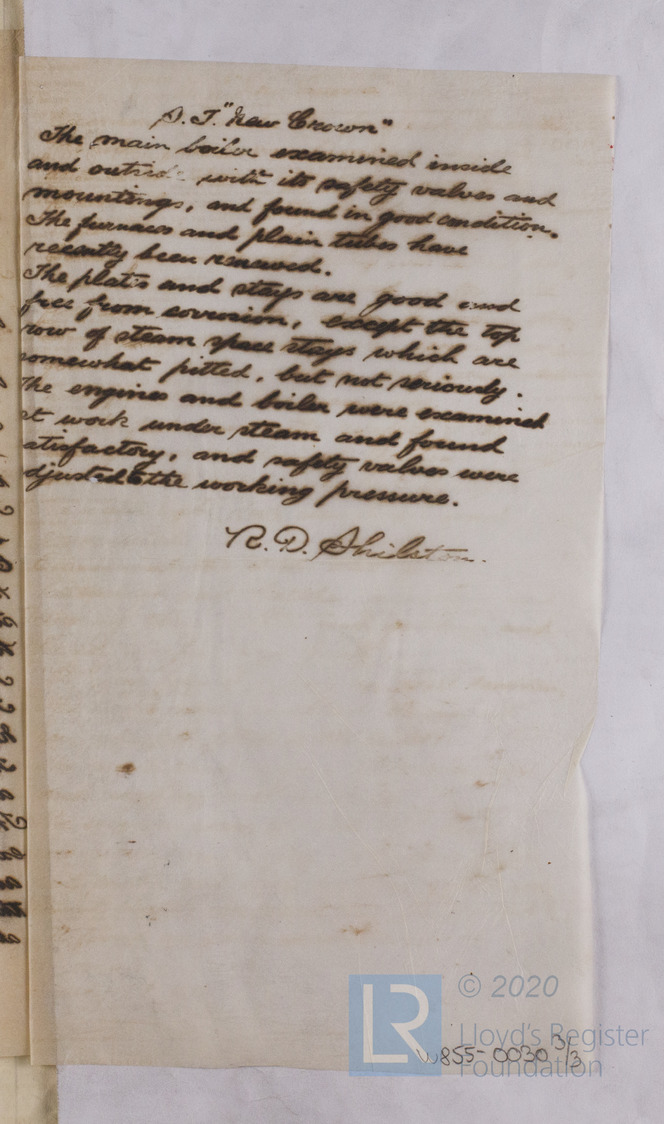 S. T. "New Crown"
The main boiler examined inside
and outside with its safety valves and
mountings, and found in good condition.
The furnaces and plain tubes have
recently been renewed.
The plates and stays are good and
free from corrosion, except the top
row of steam space stays which are
somewhat pitted, but not seriously.
The engines and boiler were examined
at work under steam and found
satisfactory, and safety valves were
adjusted to the working pressure.
R. D. Shilston.
© 2020
LR
Lloyd's Register
Foundation
W855-0030 3/3